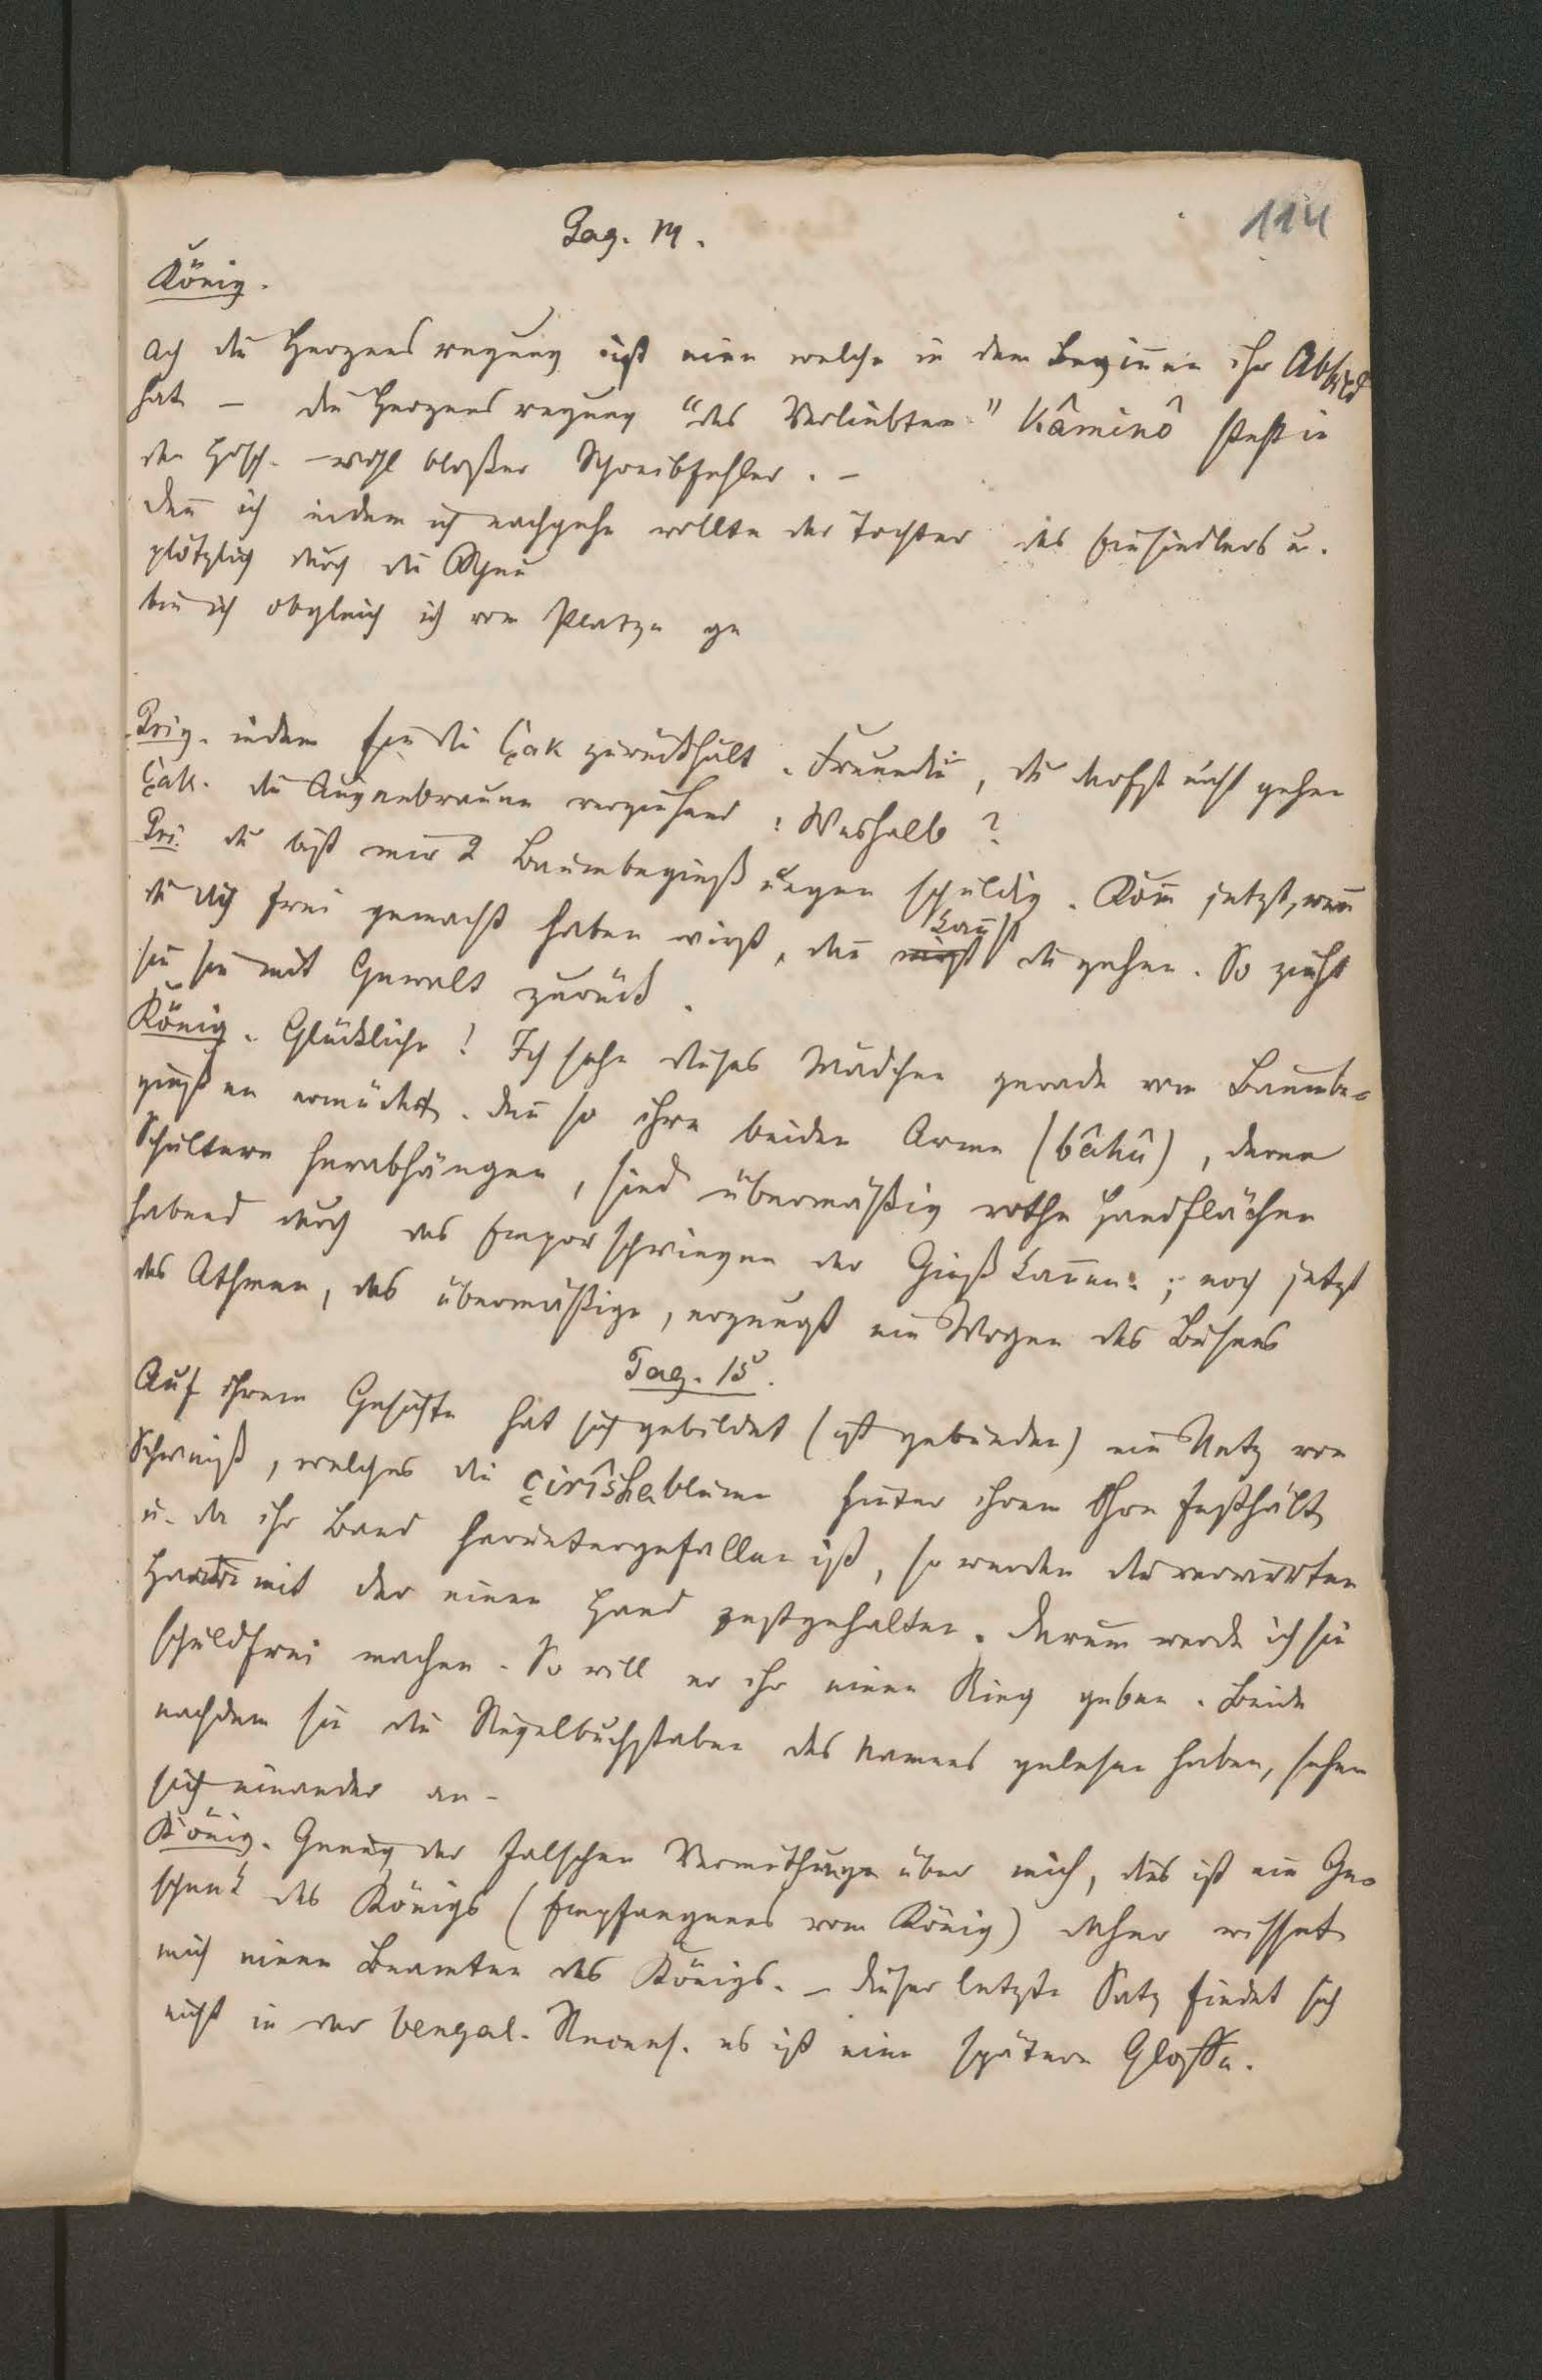 114
Pag. 14.
König.
Ach die Herzensregung ist eine welche in dem Beginnen ihr Abbild
hat – die Herzensregung "des Verliebten" Kâminô steht in
der Hdsch. – wohl bloßer Schreibfehler. –
denn ich indem ich nachgehn wollte der Tochter des Einsiedlers u.
plötzlich durch die Scheu
bin ich obgleich ich vom Platze ge
Priy. indem sie die Çak zurückhält. Freundin, du darfst nicht gehen
Çak. die Augenbrauen verziehend: Weshalb?
Pri. du bist mir 2 Baumbegießungen schuldig. Kom̄ jetzt, wen̄
du dich frei gemacht haben wirst, den̄ kan̄st du gehen. So zieht
sie sie mit Gewalt zurück.
König. Glückliche! Ich sehe dieses Mädchen gerade vom Baumbe-
gießen ermüdet. den̄ so ihre beiden Arme (bâhû), deren
Schultern herabhängen, sind übermäßig rothe Handflächen
habend durch das Emporschwingen der Gießkan̄en; noch jetzt
das Athmen, das übermäßige, erzeugt ein Wogen des Busens
Pag. 15.
Auf ihrem Gesichte hat sich gebildet (ist gebunden) ein Netz von
Schweiß, welches die çirîshablume hinter ihrem Ohre festhält
u. da ihr Band heruntergefallen ist, so werden die verwirrten
Haare mit der einen Hand festgehalten. Darum werde ich sie
schuldfrei machen. So will er ihr einen Ring geben. Beide
nachdem sie die Siegelbuchstaben des Namens gelesen haben, sehen
sich einander an –
König. Genug der falschen Vermuthunge über mich, dies ist ein Ge-
schenk des Königs (Empfangenes vom König) daher wisset
mich einen Beamten des Königs. – dieser letzte Satz findet sich
nicht in der bengal. Recens. es ist eine spätere Glosse.